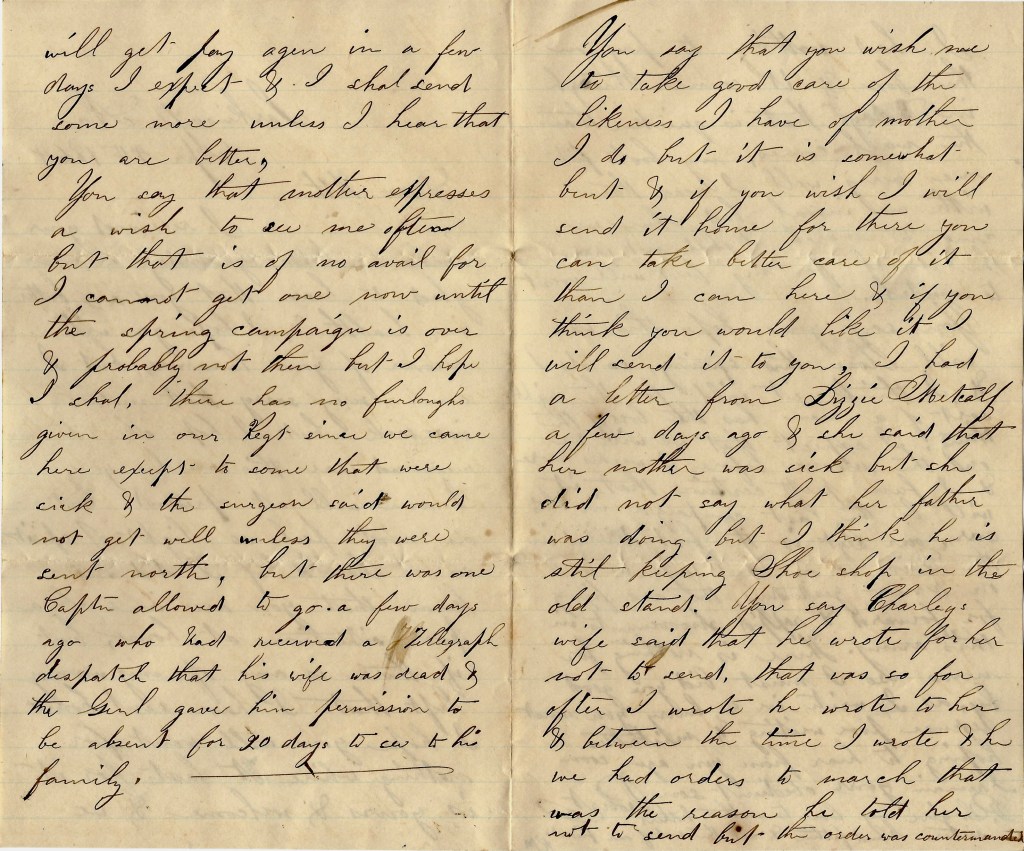 will get pay agen in a few
days I expect & I shal send
some more unless I hear that
you are better,
You say that mother expresses
a wish to see me often
but that is of no avail for
I cannot get one now until
the spring campaign is over
& probably not then but I hope
I shal, there has no furloughs
given in our Regt since we came
here exept to some that were
sick & the surgeon said would
not get well unless they were
sent north, but there was one
Captn allowed to go a few days
ago who had received a Tellegraph
despatch that his wife was dead &
the Genl gave him permission to
be absent for 20 days to see to his
family.
You say that you wish me
to take good care of the
likeness I have of mother
I do but it is somewhat
bent & if you wish I will
send it home for there you
can take better care of it
than I can here & if you
think you would like it I
will send it to you, I had
a letter from Lizzie Metcalf
a few days ago & she said that
her mother was sick but she
did not say what her father
was doing but I think he is
stil keeping Shoe shop in the
old stand. You say Charleys
wife said that he wrote for her
not to send, that was so for
after I wrote he wrote to her
& between the time I wrote & he
we had orders to march that
was the reason he told her
not to send but the order was countermanded